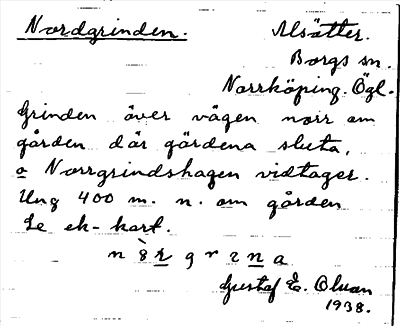 Nordgrinden. Alsätter.
Borgs sn.
Norrköping. Ögl.
Grinden över vägen norr om
gården där gärdena sluta,
o Norrgrindshagen vidtager.
Ung 400 m. n. om gården
Se ek-kart.
Gustaf E. Olsson
1938.